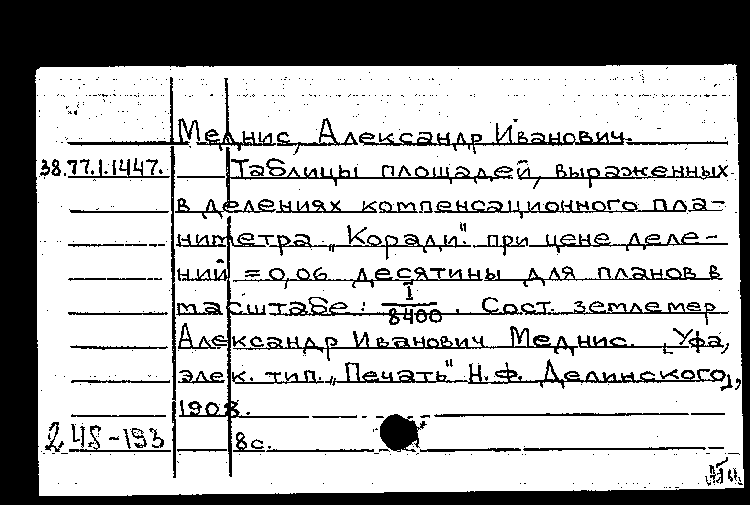 Меднис, Александр Иванович.
38.77.1.1447. Таблицы площадей, выраженных
в делениях компенсационного пла-
ниметра „Коради". при цене деле-
ний = 0,06 десятины для планов в
масштабе: 1/8400. Сост. землемер
Александр Иванович Меднис. [Уфа,
элек. тип. „Печать" Н.Ф. Делинского],
1908.
248-193 8с.